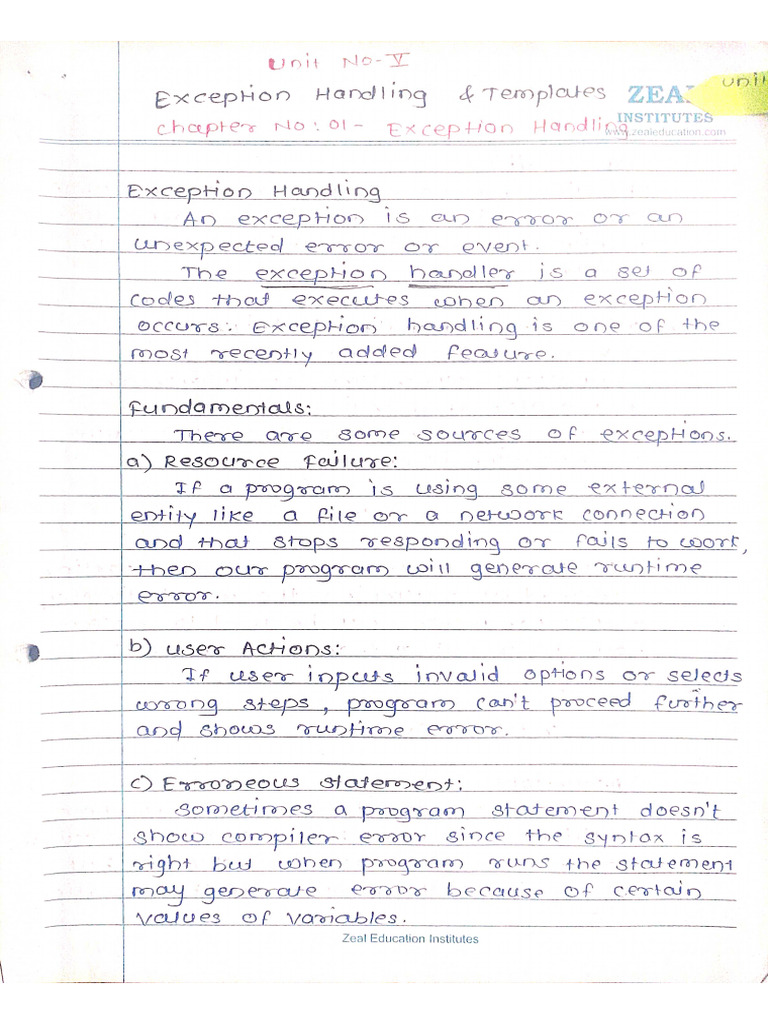 Unit No-V
Exception Handling & Templates
ZEAL
unit
INSTITUTES
Chapter No: 01- Exception Handling
www.zealeducation.com
Exception Handling
An exception is an error or an
unexpected error or event.
The exception handler is a set of
codes that executes when an exception
occurs. Exception handling is one of the
most recently added feature.
Fundamentals:
There are some sources of exceptions.
a) Resource Failure:
If a program is using some external
entity like a file or a network connection
and that stops responding or fails to work,
then our program will generate runtime
error.
b) User Actions:
If user inputs invalid options or selects
wrong steps, program can't proceed further
and shows runtime error.
c) Erroneous statement:
Sometimes a program statement doesn't
show compiler error since the syntax is
right but when program runs the statement
may generate error because of certain
values of variables.
Zeal Education Institutes